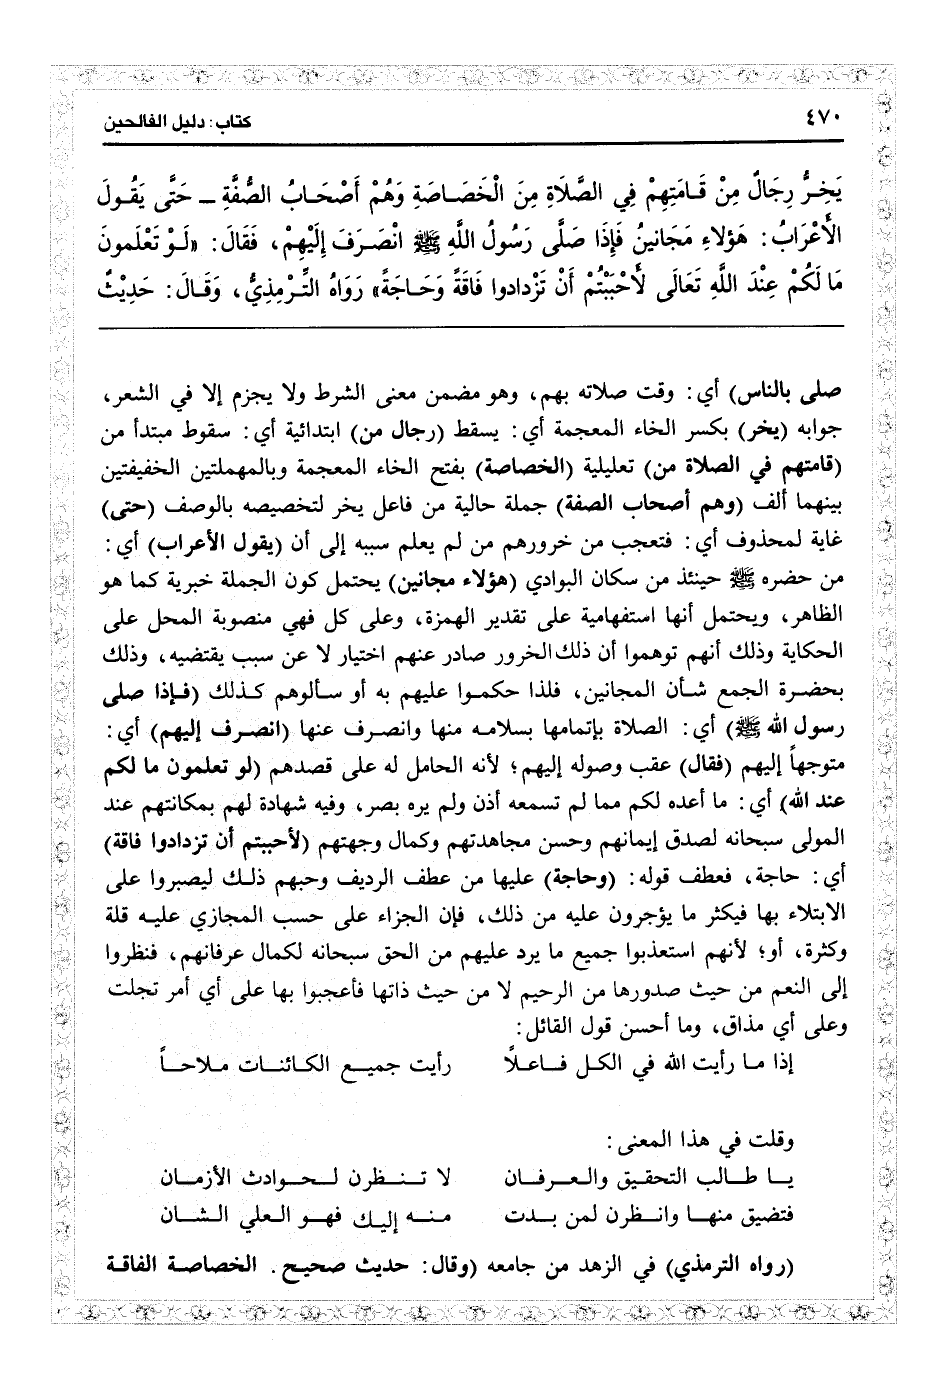 ٤٧٠
كتاب: دليل الفالحين
يَخِرُّ رِجَالٌ مِنْ قَامَتِهِمْ فِي الصَّلَاةِ مِنَ الْخَصَاصَةِ وَهُمْ أَصْحَابُ الصُّفَّةِ ـ حَتَّى يَقُولَ
الْأَعْرَابُ: هَؤُلَاءِ مَجَانِينُ فَإِذَا صَلَّى رَسُولُ اللَّهِ ﷺ انْصَرَفَ إِلَيْهِمْ، فَقَالَ: «لَوْ تَعْلَمونَ
مَا لَكُمْ عِنْدَ اللَّهِ تَعَالَى لَأَحْبَبْتُمْ أَنْ تَزْدادوا فَاقَةً وَحَاجَةً» رَوَاهُ التِّرْمِذِيُّ، وَقَالَ: حَدِيثٌ
صلى بالناس) أي: وقت صلاته بهم، وهو مضمن معنى الشرط ولا يجزم إلا في الشعر،
جوابه (يخر) بكسر الخاء المعجمة أي: يسقط (رجال من) ابتدائية أي: سقوط مبتدأ من
(قامتهم في الصلاة من) تعليلية (الخصاصة) بفتح الخاء المعجمة وبالمهملتين الخفيفتين
بينهما ألف (وهم أصحاب الصفة) جملة حالية من فاعل يخر لتخصيصه بالوصف (حتى)
غاية لمحذوف أي: فتعجب من خرورهم من لم يعلم سببه إلى أن (يقول الأعراب) أي:
من حضره ﷺ حينئذ من سكان البوادي (هؤلاء مجانين) يحتمل كون الجملة خبرية كما هو
الظاهر، ويحتمل أنها استفهامية على تقدير الهمزة، وعلى كل فهي منصوبة المحل على
الحكاية وذلك أنهم توهموا أن ذلك الخرور صادر عنهم اختيار لا عن سبب يقتضيه، وذلك
بحضرة الجمع شأن المجانين، فلذا حكموا عليهم به أو سألوهم كذلك (فإذا صلى
رسول الله ﷺ) أي: الصلاة بإتمامها بسلامه منها وانصرف عنها (انصرف إليهم) أي:
متوجهاً إليهم (فقال) عقب وصوله إليهم؛ لأنه الحامل له على قصدهم (لو تعلمون ما لكم
عند الله) أي: ما أعده لكم مما لم تسمعه أذن ولم يره بصر، وفيه شهادة لهم بمكانتهم عند
المولى سبحانه لصدق إيمانهم وحسن مجاهدتهم وكمال وجهتهم (لأحببتم أن تزدادوا فاقة)
أي: حاجة، فعطف قوله: (وحاجة) عليها من عطف الرديف وحبهم ذلك ليصبروا على
الابتلاء بها فيكثر ما يؤجرون عليه من ذلك، فإن الجزاء على حسب المجازي عليه قلة
وكثرة، أو؛ لأنهم استعذبوا جميع ما يرد عليهم من الحق سبحانه لكمال عرفانهم، فنظروا
إلى النعم من حيث صدورها من الرحيم لا من حيث ذاتها فأعجبوا بها على أي أمر تجلت
وعلى أي مذاق، وما أحسن قول القائل:
إذا ما رأيت الله في الكل فاعلاً رأيت جميع الكائنات ملاحاً
وقلت في هذا المعنى:
يا طالب التحقيق والعرفان لا تنظرن لحوادث الأزمان
فتضيق منها وانظرن لمن بدت منه إليك فهو العلي الشان
(رواه الترمذي) في الزهد من جامعه (وقال: حديث صحيح. الخصاصة الفاقة